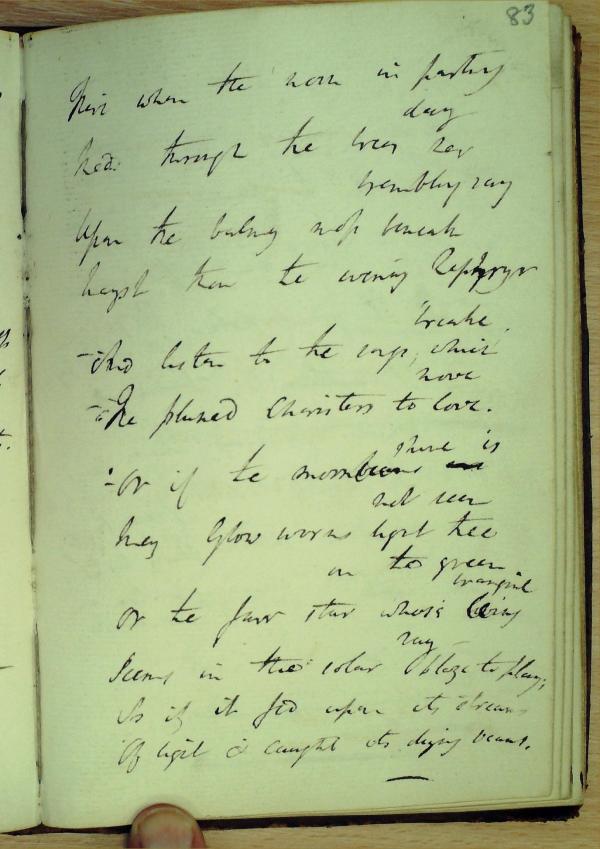 83
when the in parting
day
through the trees
trembling ray
Upon the balmy beneath
than the evening Zephyr
breathe.
And listen to the songs, which
move
The plumed Choristers to love.
shine is
Or if the moonbeams
not seen
may Glow worms light thee
on the green
Or the fair star whose
tranquil
ray
Seems in the solar blaze to play,
As if it fed upon its streams
Of light & caught its dying beams.